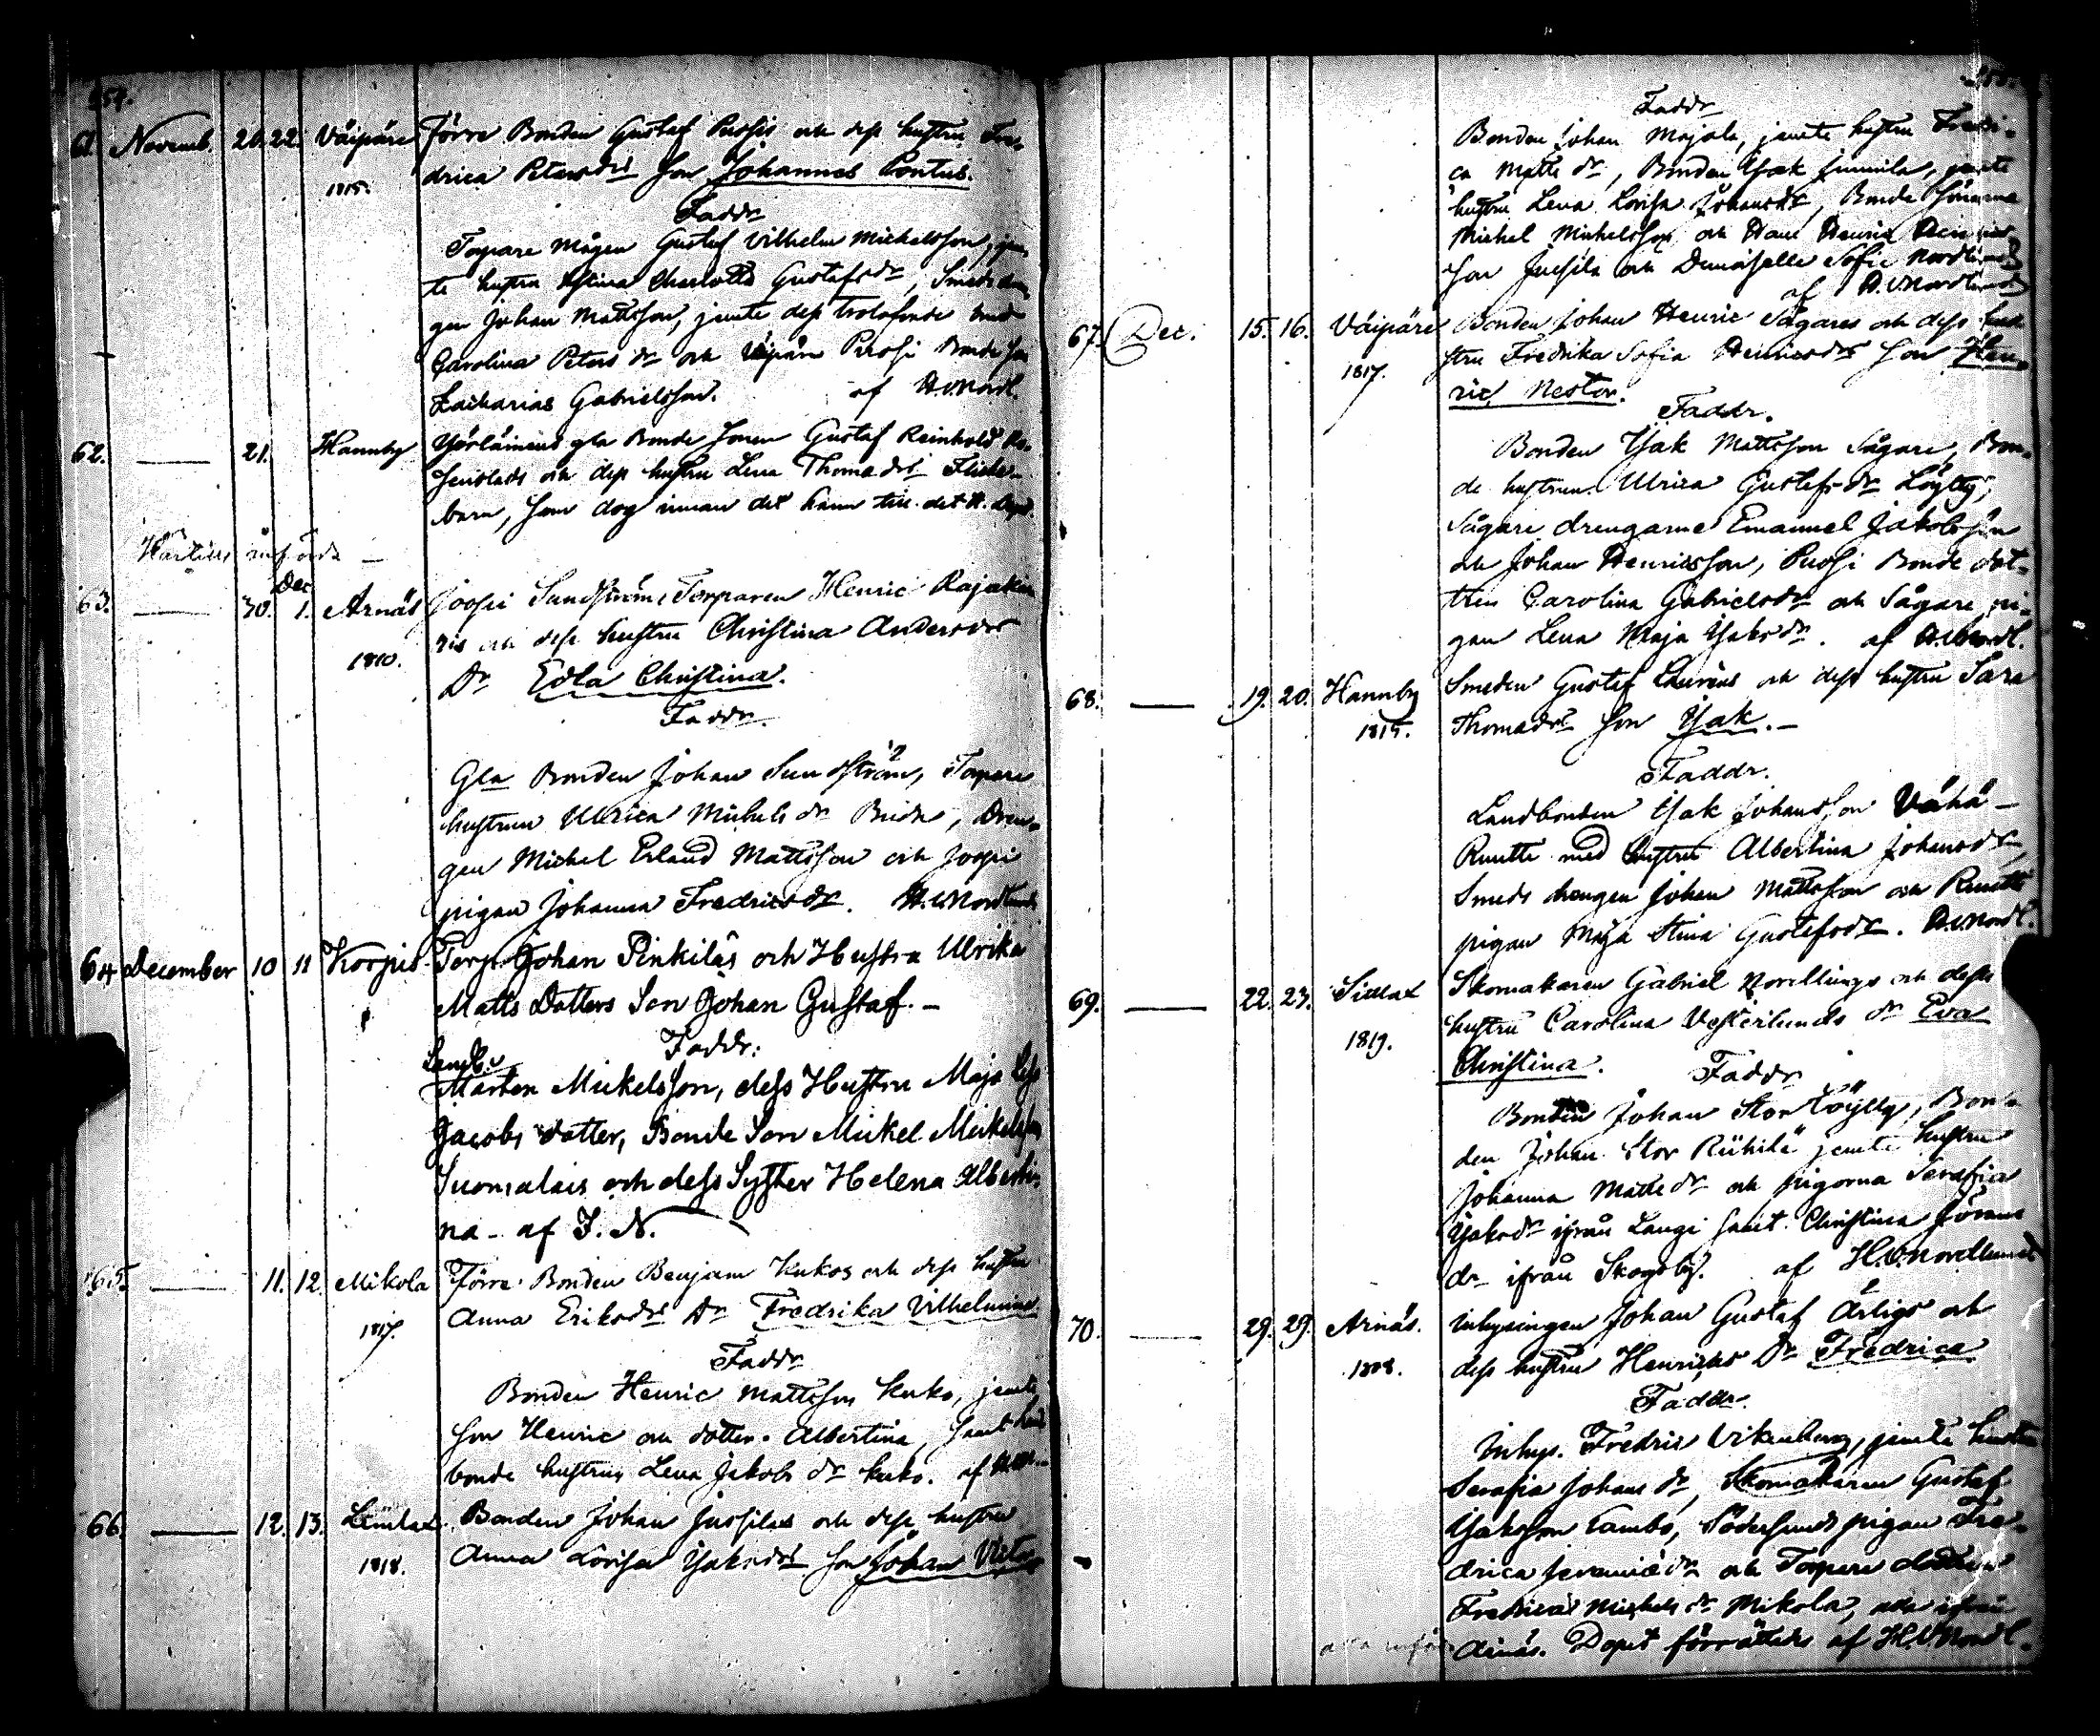 254.
61. Novemb. 20. 22. Väipäre Förre Bonden Gustaf Purhis och dess hustru Fre-
1815. drica Petersdrs Son Johannes Pontus.
Faddr
Torpare mågen Gustaf Vilhelm Michelsson, jem-
te hustru Stina Charlotta Gustafsdr, Smeds drän-
gen Johan Mattsson, jemte dess trolofvade
Carolina Peters dr och Väipäre Bonde Son
Zacharias Gabrielsson. af H.W. Nordl.
62. — 21. Hannby gla Bonde Sonen Gustaf Reinhold
och dess hustru Lena Thomædrs Flicke-
barn, som dog innan det hann till det H. Dopet.
Härtills införda —
Dec
63. — 30. 1. Arnäs Joopi Sundströms Torparen Henric
1810. och dess hustru Christina Andersdrs
Dr Edla Christina.
Faddr.
Gla Bonden Johan Sundström, Torpare
hustrun Ulrica Michels dr, Dren-
gen Michel Erland Mattsson och Joopi
pigan Johanna Fredricsdr. H.W. Nordlund
64 December 10 11 Korpis Torp. Johan Pinkiläs och Hustru Ulrika
Matts Dotters Son Johan Gustaf. —
Faddr:
Landb.
Mårten Mickelsson, dess Hustru Maja Lisa
Jacobs dotter, Bonde Son Mickel Mickelsson
Suomalais och dess Syster Helena Alberti-
na — af J. N.
65. — 11. 12. Mikola Förre Bonden Benjam Kukos och dess hustru
1817. Anna Eriksdrs Dr Fredrika Vilhelmina
Faddr
Bonden Henric Mattsson Kuko, jemte
Son Henric och dotter Albertina, samt Land-
bonde hustrun Lena Jakobs dr Kuko. af H.W.
66. — 12. 13. Lemlax Bonden Johan Jussilas och dess hustru
1818. Anna Lovisa Isaksdrs Son Johan Victor
255.
Faddr
Bonden Johan Majala, jemte hustru Fredri-
ca Matts dr, Bonden Isak Junnila, jemte
hustru Lena Lovisa Johansdr, Bonde Sönerna
Michel Michelsson och Hans Henric Henrics-
son Jussila och Demoiselle Sofie Nordlund
af H.W. Nordlund
67. Dec. 15. 16. Väipäre Bonden Johan Henric Sågares och dess hu-
1817. stru Fredrika Sofia Henricsdrs Son Hen-
ric Nestor.
Faddr.
Bonden Isak Mattsson Sågare, Bon-
de hustrun Ulrica Gustafs dr Löytty,
Sågare drengarne Emanuel Jakobsson
och Johan Henricsson, Bonde dot-
tren Carolina Gabrielsdr och Sågare pi-
gan Lena Maja Isaksdr. af H.W. Nordl.
68. — 19. 20. Hannby Smeden Gustaf och dess hustru Sara
1815. Thomædrs Son Isak. —
Faddr.
Landbonden Isak Johansson Vähä-
Ruutte med hustru Albertina Johansdr,
Smeds drengen Johan Mattsson och
pigan Maja Stina Gustafsdr. H.W. Nordl.
69. — 22. 23. Sidlax Skomakaren Gabriel Nordlings och dess
1819. hustru Carolina Vesterlunds dr Eva
Christina.
Faddr
Bonden Johan Stor Löytty, Bon-
den Johan Stor jemte hustru
Johanna Matts dr och pigorna Serafia
Isaksdr ifrån Langi samt Christina Görans
dr ifrån Skogsby. af H.W. Nordlund
70. — 29. 29. Arnäs. Inhysingen Johan Gustaf Ärligs och
1808. dess hustru Dr Fredrica
Faddr.
Inhys. Fredric Vikenberg, jemte hustru
Serafia Johans dr, Skomakaren Gustaf
Isaksson Tambo, Södersunds pigan Fre-
drica dr och Torpare dottren
Fredrica Michels dr Mikola, alla ifrån
Arnäs. Dopet förrättades af H.W. Nordl.
alla införda